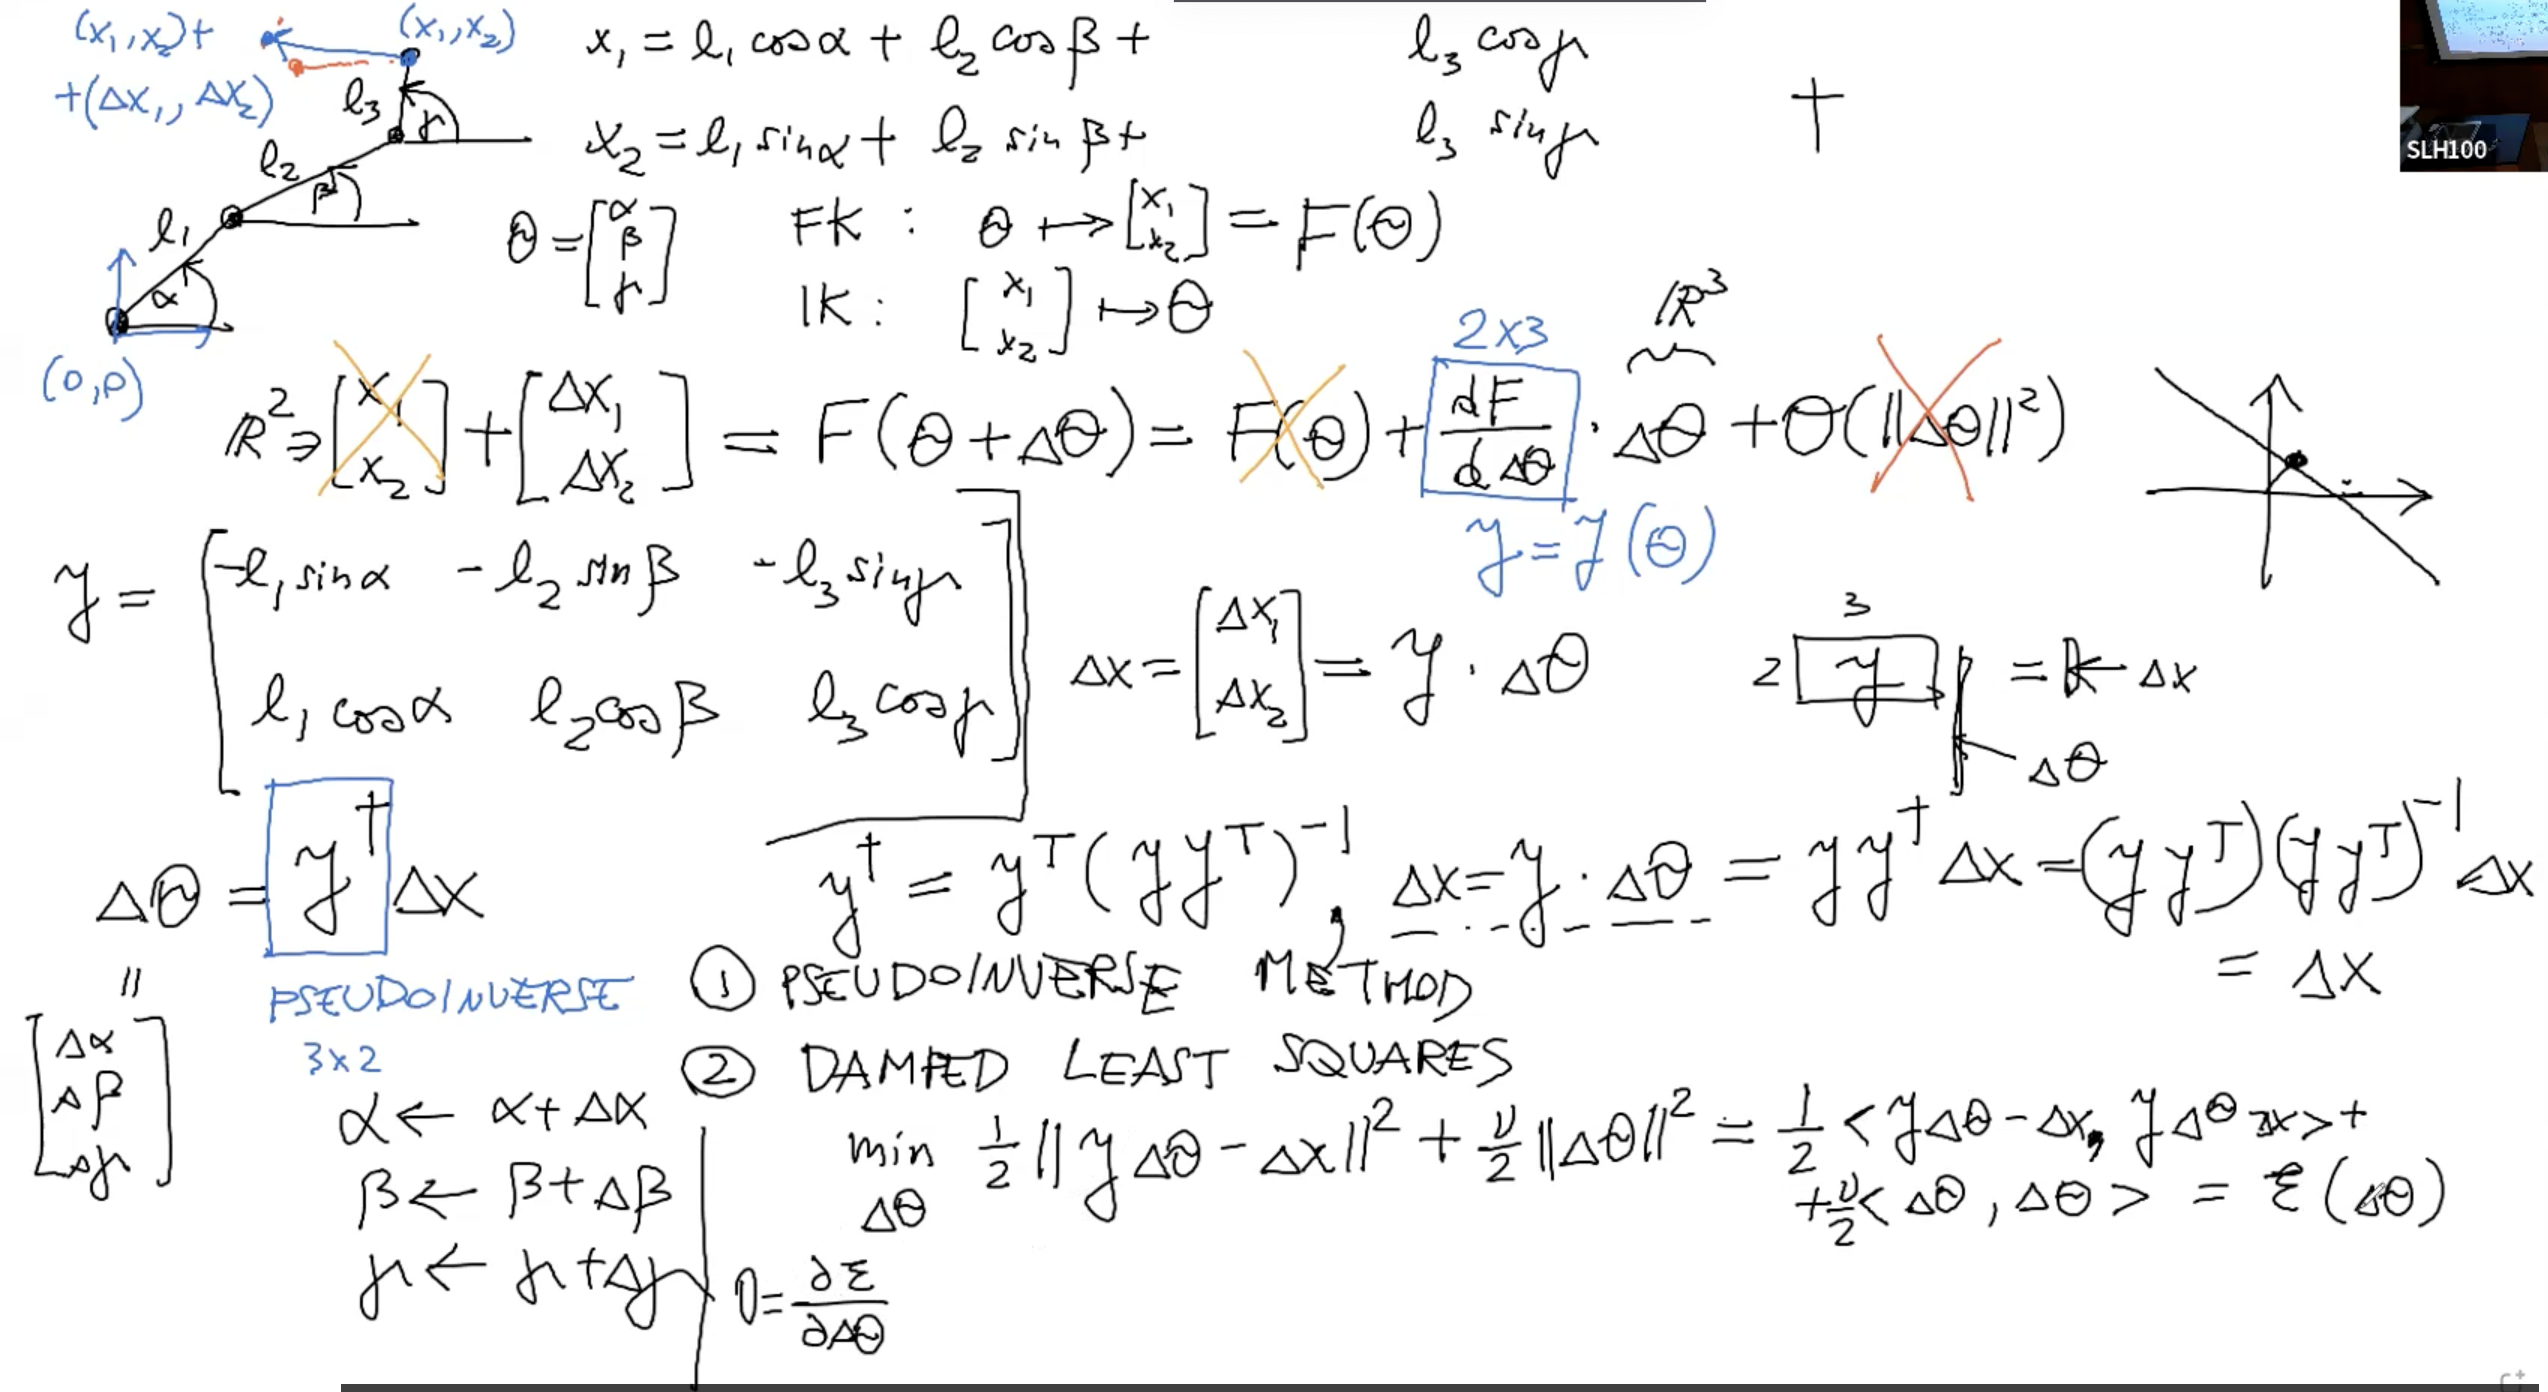 (x₁,x₂)+
+(Δx₁, Δx₂)
(x₁,x₂)
l₃
γ
l₂
β
l₁
α
(0,0)
x₁ = l₁ cosα + l₂ cosβ + l₃ cosγ
x₂ = l₁ sinα + l₂ sinβ + l₃ sinγ
†
θ = [α β γ]
FK : θ ↦ [x₁ x₂] = F(θ)
IK : [x₁ x₂] ↦ θ
2x3
ℝ³
ℝ² ∋ [x₁ x₂] + [Δx₁ Δx₂] = F(θ+Δθ) = F(θ) + dF/dΔθ · Δθ + O(||Δθ||²)
J = J(θ)
J = [-l₁ sinα -l₂ sinβ -l₃ sinγ
l₁ cosα l₂ cosβ l₃ cosγ]
Δx = [Δx₁ Δx₂] = J · Δθ
3
2 J = ← Δx
Δθ
Δθ = J† Δx
J† = Jᵀ(JJᵀ)⁻¹, Δx = J·Δθ = JJ†Δx = (JJᵀ)(JJᵀ)⁻¹Δx
= Δx
=
[Δα Δβ Δγ]
PSEUDOINVERSE
3x2
α ← α+Δα
β ← β+Δβ
γ ← γ+Δγ
① PSEUDOINVERSE METHOD
② DAMPED LEAST SQUARES
min Δθ ½||JΔθ-Δx||² + ν/2||Δθ||² = ½<JΔθ-Δx, JΔθ-Δx>+
+ν/2<Δθ, Δθ> = ℰ(Δθ)
0 = ∂ℰ/∂Δθ
SLH100